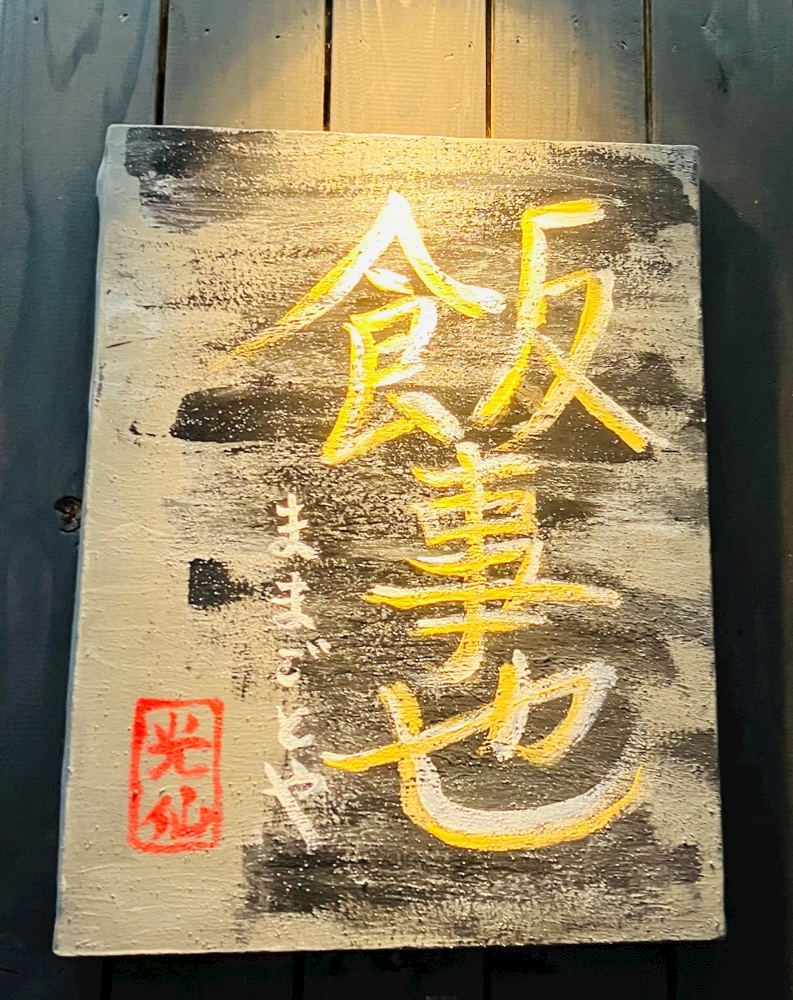 飯事也
ままごとや
光仙